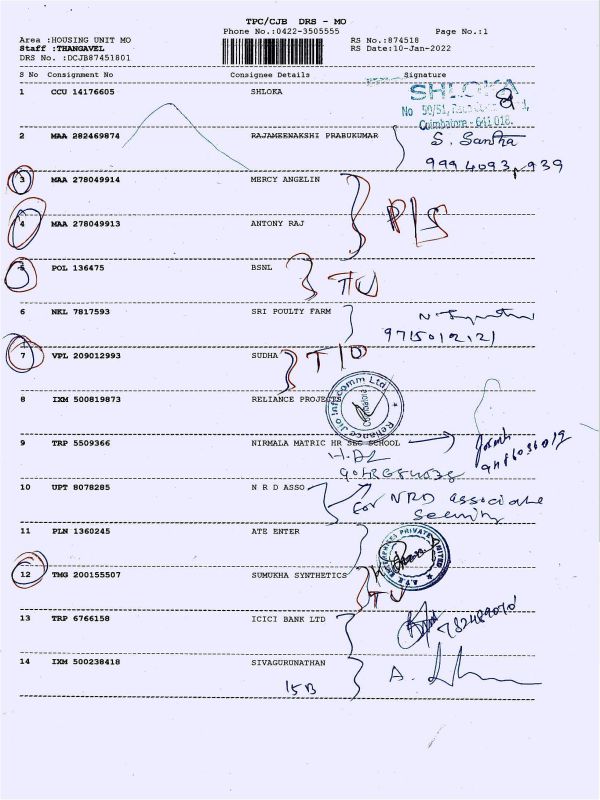 TPC/CJB DRS - MO
Phone No.:0422-3505555 Page No.:1
Area :HOUSING UNIT MO RS No.:874518
Staff :THANGAVEL RS Date:10-Jan-2022
DRS No. :DCJB87451801
S No Consignment No Consignee Details Signature
1 CCU 14176605 SHLOKA
SHLOKA
No 50/51,
Coimbatore - 641 018.
2 MAA 282469874 RAJAMEENAKSHI PRABUKUMAR S. Santha
9994093939
3 MAA 278049914 MERCY ANGELIN
P/S
4 MAA 278049913 ANTONY RAJ
5 POL 136475 BSNL
6 NKL 7817593 SRI POULTY FARM
9715012121
7 VPL 209012993 SUDHA
8 IXM 500819873 RELIANCE PROJECTS
Reliance Jio Infocomm Ltd.
Coimbatore
9 TRP 5509366 NIRMALA MATRIC HR SEC SCHOOL
10 UPT 8078285 N R D ASSO
For NRD associate
Security
11 PLN 1360245 ATE ENTER
ENTERPRISES PRIVATE LIMITED
12 TMG 200155507 SUMUKHA SYNTHETICS
13 TRP 6766158 ICICI BANK LTD
14 IXM 500238418 SIVAGURUNATHAN
15B